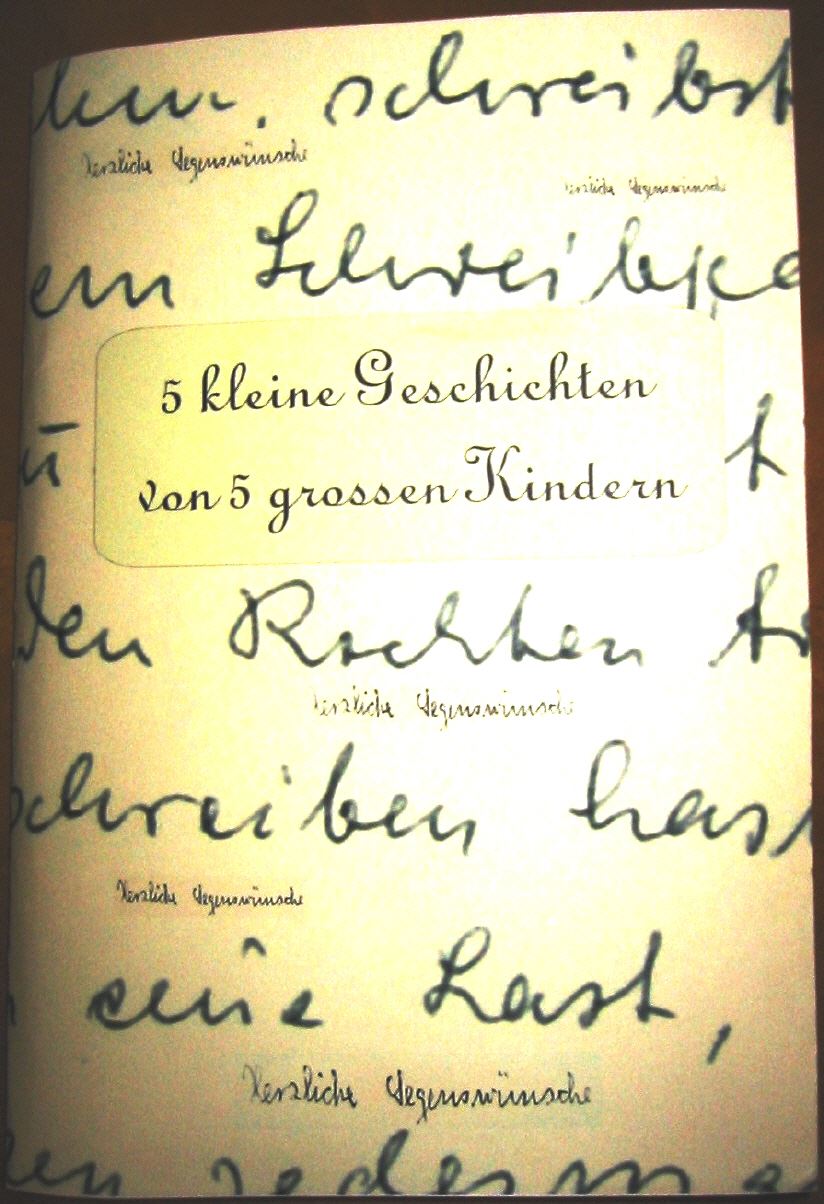 schreibst
Herzliche Segenswünsche
Herzliche Segenswünsche
em Schreibke
5 kleine Geschichten
von 5 grossen Kindern
den Rechten
Herzliche Segenswünsche
schreiben has
Herzliche Segenswünsche
eine Last,
Herzliche Segenswünsche
en jederma